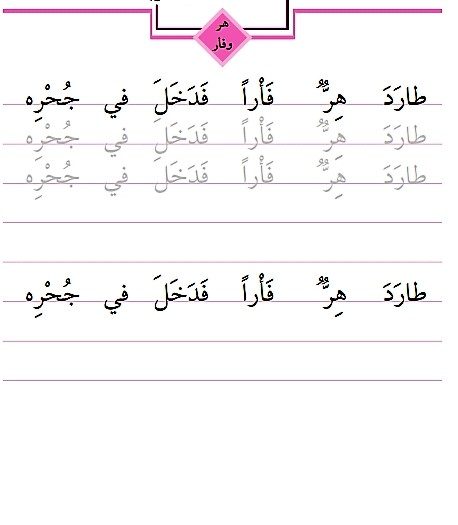 هر
وفار
طارَدَ هِرٌّ فَأْراً فَدَخَلَ في جُحْرِه
طارَدَ هِرٌّ فَأْراً فَدَخَلَ في جُحْرِه
طارَدَ هِرٌّ فَأْراً فَدَخَلَ في جُحْرِه
طارَدَ هِرٌّ فَأْراً فَدَخَلَ في جُحْرِه